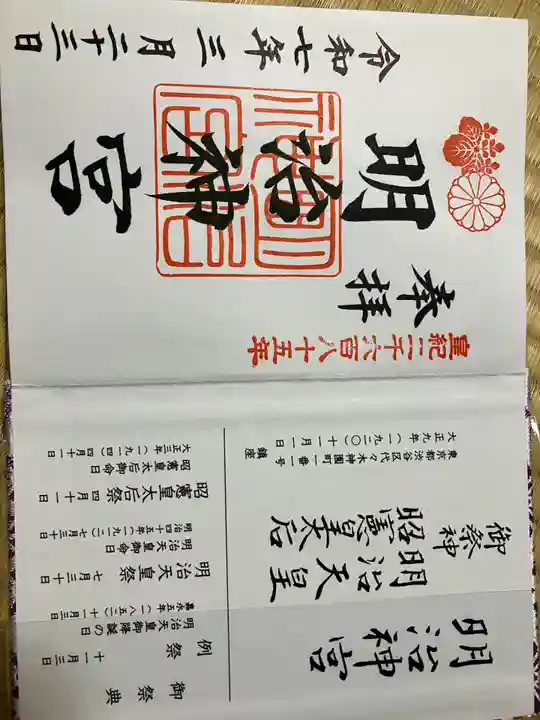 明治神宮
御祭神
明治天皇
昭憲皇太后
東京都渋谷区代々木神園町一番一号
鎮座
大正九年(一九二〇)十一月一日
御祭典
例祭
十一月三日
明治天皇御降誕の日
嘉永五年(一八五二)十一月三日
明治天皇祭 七月三十日
明治天皇御命日
明治四十五年(一九一二)七月三十日
昭憲皇太后祭 四月十一日
昭憲皇太后御命日
大正三年(一九一四)四月十一日
皇紀二千六百八十五年
奉拝
明治神宮
明治神宮
令和七年三月二十三日